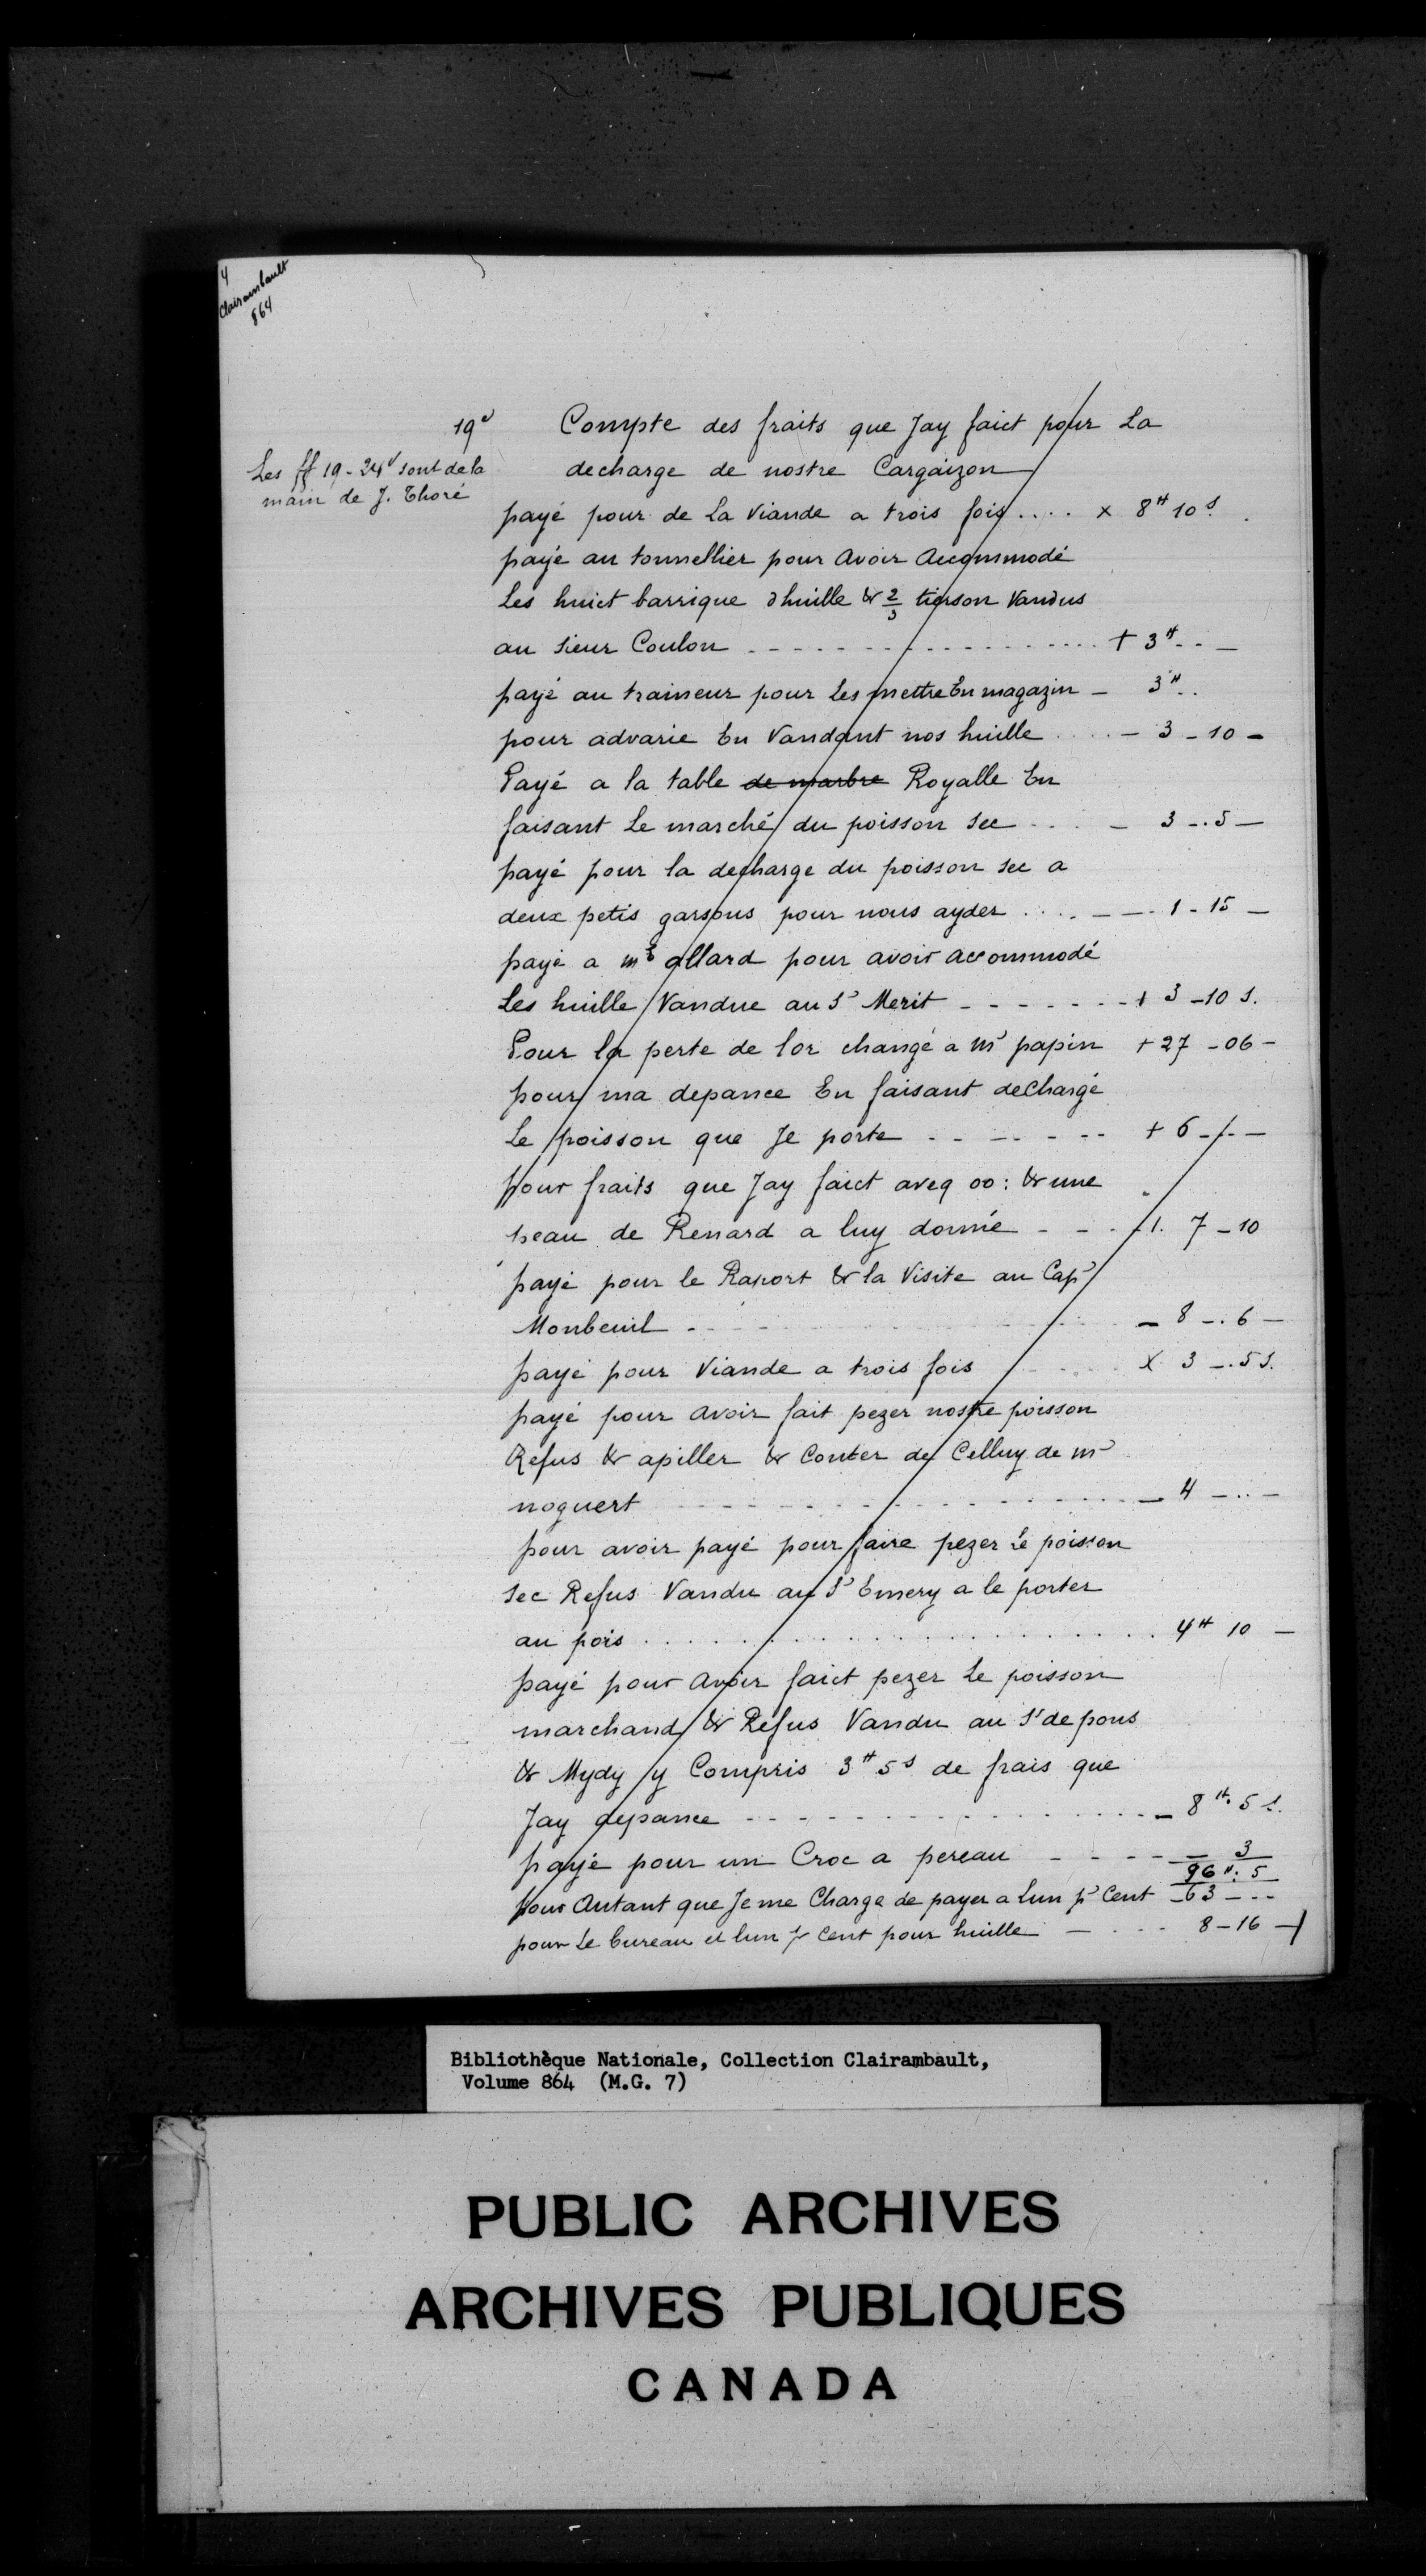 4
Clairambault
864
19v
Les ff 19-24v sont de la
main de J. Thoré
Compte des fraits que Jay faict pour La
decharge de nostre Cargaizon
payé pour de La Viande a trois fois .... x 8# 10 s.
payé au tonnellier pour Avoir Accommodé
Les huict barrique dhuille & 2/3 tierson Vandus
au sieur Coulon ---------- + 3# --
payé au traineur pour Les mettre En magazin - 3# ..
pour advarie En Vandant nos huille .... - 3 - 10 -
Payé a la table de marbre Royalle En
faisant Le marché du poisson sec ... - 3 -. 5 -
payé pour la decharge du poisson sec a
deux petis garsons pour nous ayder .... - - 1 - 15 -
payé a mr allard pour avoir accommodé
Les huille Vandue au Sr Merit ------- + 3 - 10 s.
Pour la perte de lor changé a Mr papin + 27 - 06 -
pour ma depance En faisant deChargé
Le poisson que Je porte ------- + 6 - . -
pour fraits que Jay faict aveq oo: & une
peau de Renard a luy donné - - - 7 - 10
payé pour le Raport & la Visite au Capr
Monbeuil ---------- - 8 -. 6 -
payé pour Viande a trois fois .... x 3 -. 5 s.
payé pour avoir fait pezer nostre poisson
Refus & apiller & Conter de Celluy de mr
noguert ---------- - 4 - .. -
pour avoir payé pour faire pezer Le poisson
sec Refus Vandu au Sr Emery a le porter
au pois .......... 4# 10 -
payé pour Avoir faict pezer Le poisson
marchand & Refus Vandu au Sr de pons
& Mydy y Compris 3# 5 s de frais que
Jay depance ---------- - 8#. 5 s.
payé pour un Croc a pereau - - - - - 3
96#: 5
pour Autant que Je me Charge de payer a lun pr Cent - 63 - --
pour Le bureau et lun pr Cent pour huille - - - - 8 - 16 -
Bibliothèque Nationale, Collection Clairambault,
Volume 864 (M.G. 7)
PUBLIC ARCHIVES
ARCHIVES PUBLIQUES
CANADA